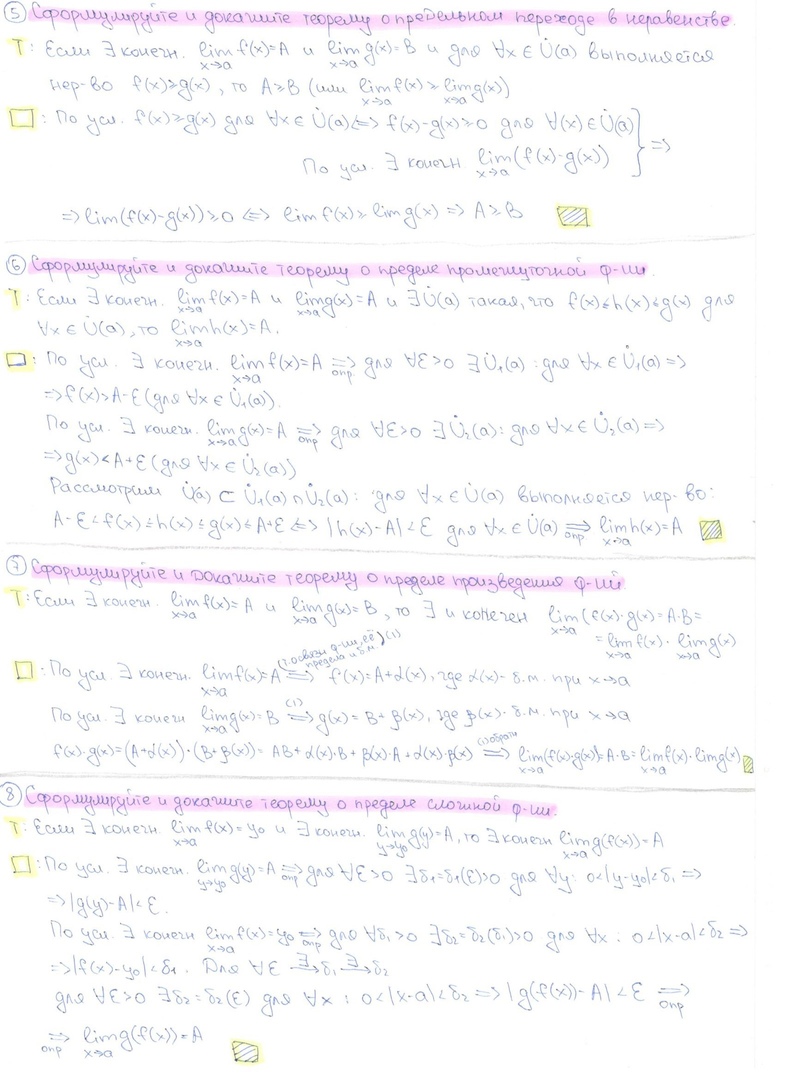 ⑤ Сформулируйте и докажите теорему о предельном переходе в неравенстве.
Т: Если ∃ конечн. lim f(x)=A и lim g(x)=B и для ∀x∈U̇(a) выполняется
x→a x→a
нер-во f(x)≥g(x), то A≥B (или lim f(x)≥lim g(x))
x→a x→a
□: По усл. f(x)≥g(x) для ∀x∈U̇(a)<=> f(x)-g(x)≥0 для ∀(x)∈U̇(a) } =>
По усл. ∃ конечн. lim(f(x)-g(x))
x→a
=> lim(f(x)-g(x))≥0 <=> lim f(x)≥lim g(x) => A≥B
x→a x→a x→a
⑥ Сформулируйте и докажите теорему о пределе промежуточной ф-ии.
Т: Если ∃ конечн. lim f(x)=A и lim g(x)=A и ∃U̇(a) такая, что f(x)≤h(x)≤g(x) для
x→a x→a
∀x∈U̇(a), то lim h(x)=A.
x→a
□: По усл. ∃ конечн. lim f(x)=A => для ∀ε>0 ∃U̇₁(a): для ∀x∈U̇₁(a) =>
x→a опр
=> f(x)>A-ε (для ∀x∈U̇₁(a)).
По усл. ∃ конечн. lim g(x)=A => для ∀ε>0 ∃U̇₂(a): для ∀x∈U̇₂(a) =>
x→a опр
=> g(x)<A+ε (для ∀x∈U̇₂(a))
Рассмотрим U̇(a) ⊂ U̇₁(a)∩U̇₂(a): для ∀x∈U̇(a) выполняется нер-во:
A-ε<f(x)≤h(x)≤g(x)<A+ε <=> |h(x)-A|<ε для ∀x∈U̇(a) => lim h(x)=A
опр x→a
⑦ Сформулируйте и докажите теорему о пределе произведения ф-ий.
Т: Если ∃ конечн. lim f(x)=A и lim g(x)=B, то ∃ и конечен lim(f(x)·g(x)=A·B=
x→a x→a x→a
=lim f(x)·lim g(x)
x→a x→a
(т.о связи ф-ии, её предела и б.м.) (1)
□: По усл. ∃ конечн. lim f(x)=A => f(x)=A+α(x), где α(x)- б.м. при x→a
x→a
По усл. ∃ конечн lim g(x)=B =>(1) g(x)=B+β(x), где β(x)- б.м. при x→a
x→a
f(x)·g(x)=(A+α(x))·(B+β(x))=AB+α(x)·B+β(x)·A+α(x)·β(x) =>(1)обратн lim(f(x)·g(x))=A·B=lim f(x)·lim g(x)
x→a x→a x→a
⑧ Сформулируйте и докажите теорему о пределе сложной ф-ии.
Т: Если ∃ конечн. lim f(x)=y₀ и ∃ конечн. lim g(y)=A, то ∃ конечн lim g(f(x))=A
x→a y→y₀ x→a
□: По усл. ∃ конечн. lim g(y)=A => для ∀ε>0 ∃δ₁=δ₁(ε)>0 для ∀y: 0<|y-y₀|<δ₁ =>
y→y₀ опр
=> |g(y)-A|<ε.
По усл. ∃ конечн lim f(x)=y₀ => для ∀δ₁>0 ∃δ₂=δ₂(δ₁)>0 для ∀x: 0<|x-a|<δ₂ =>
x→a опр
=> |f(x)-y₀|<δ₁. Для ∀ε ∃→ δ₁ ∃→ δ₂
для ∀ε>0 ∃δ₂=δ₂(ε) для ∀x: 0<|x-a|<δ₂ => |g(f(x))-A|<ε =>
опр
=> lim g(f(x))=A
опр x→a